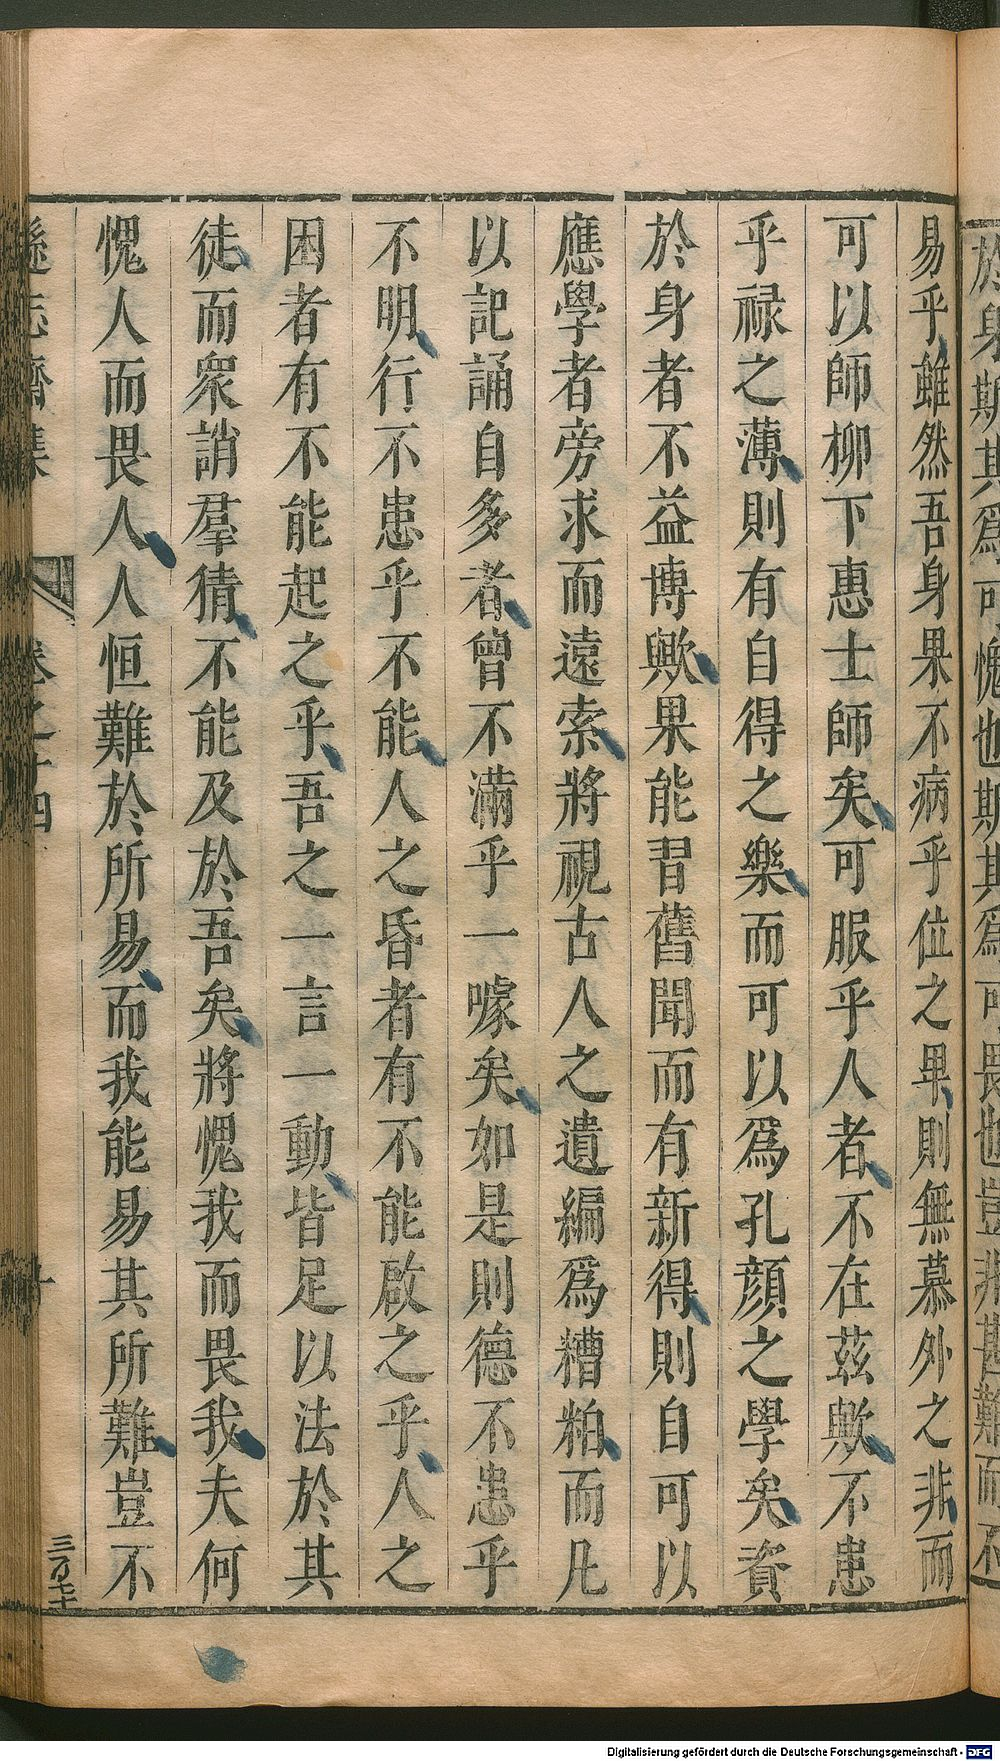 於身斯其爲可愧也斯其爲可畏也豈非甚難而不
易乎雖然吾身果不病乎位之卑則無慕外之非而
可以師柳下惠士師矣可服乎人者不在茲歟不患
乎祿之薄則有自得之樂而可以爲孔顔之學矣資
於身者不益博歟果能習舊聞而有新得則自可以
應學者旁求而遠索將視古人之遺編爲糟粕而凡
以記誦自多者曾不滿乎一噱矣如是則德不患乎
不明行不患乎不能人之昏者有不能啟之乎人之
困者有不能起之乎吾之一言一動皆足以法於其
徒而衆誚羣猜不能及於吾矣將愧我而畏我夫何
愧人而畏人人恒難於所易而我能易其所難豈不
遜志齋集
卷之十四
十
Digitalisierung gefördert durch die Deutsche Forschungsgemeinschaft - DFG